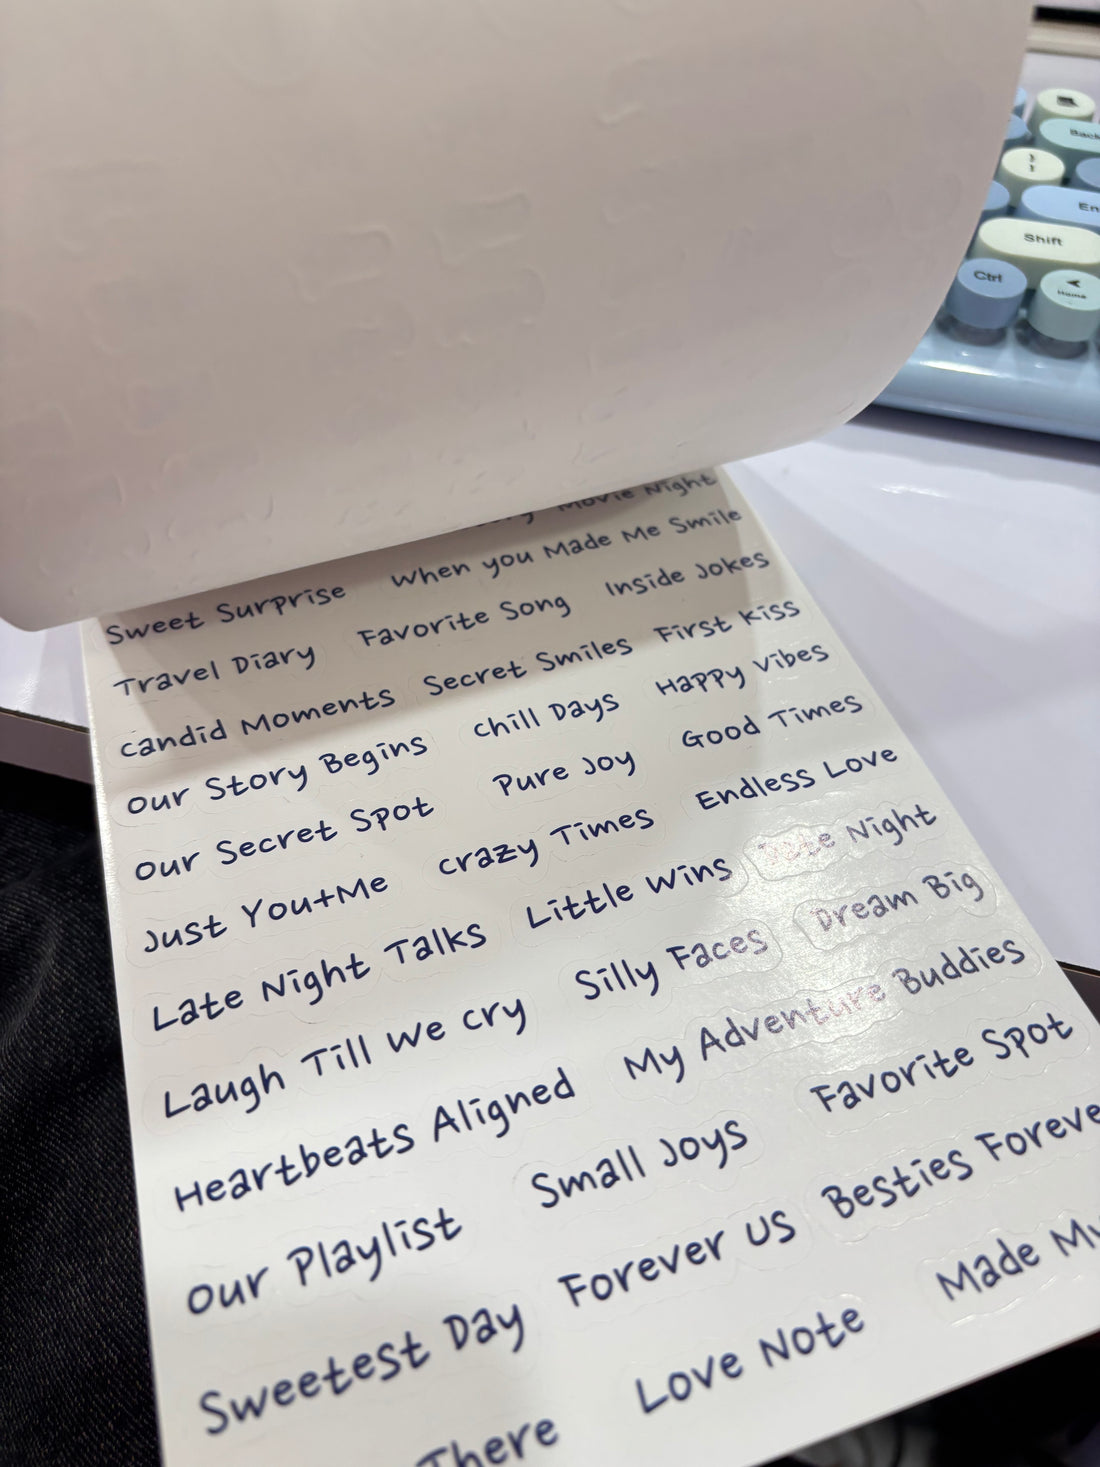 Movie Night
Sweet Surprise When you Made Me Smile
Travel Diary Favorite Song Inside Jokes
Candid Moments Secret Smiles First Kiss
Our Story Begins Chill Days Happy Vibes
Our Secret Spot Pure Joy Good Times
Just You+Me Crazy Times Endless Love
Late Night Talks Little Wins Date Night
Laugh Till We Cry Silly Faces Dream Big
Heartbeats Aligned My Adventure Buddies
Our Playlist Small Joys Favorite Spot
Sweetest Day Forever Us Besties Foreve
There Love Note Made My
Back
En
Shift
Ctrl
Home